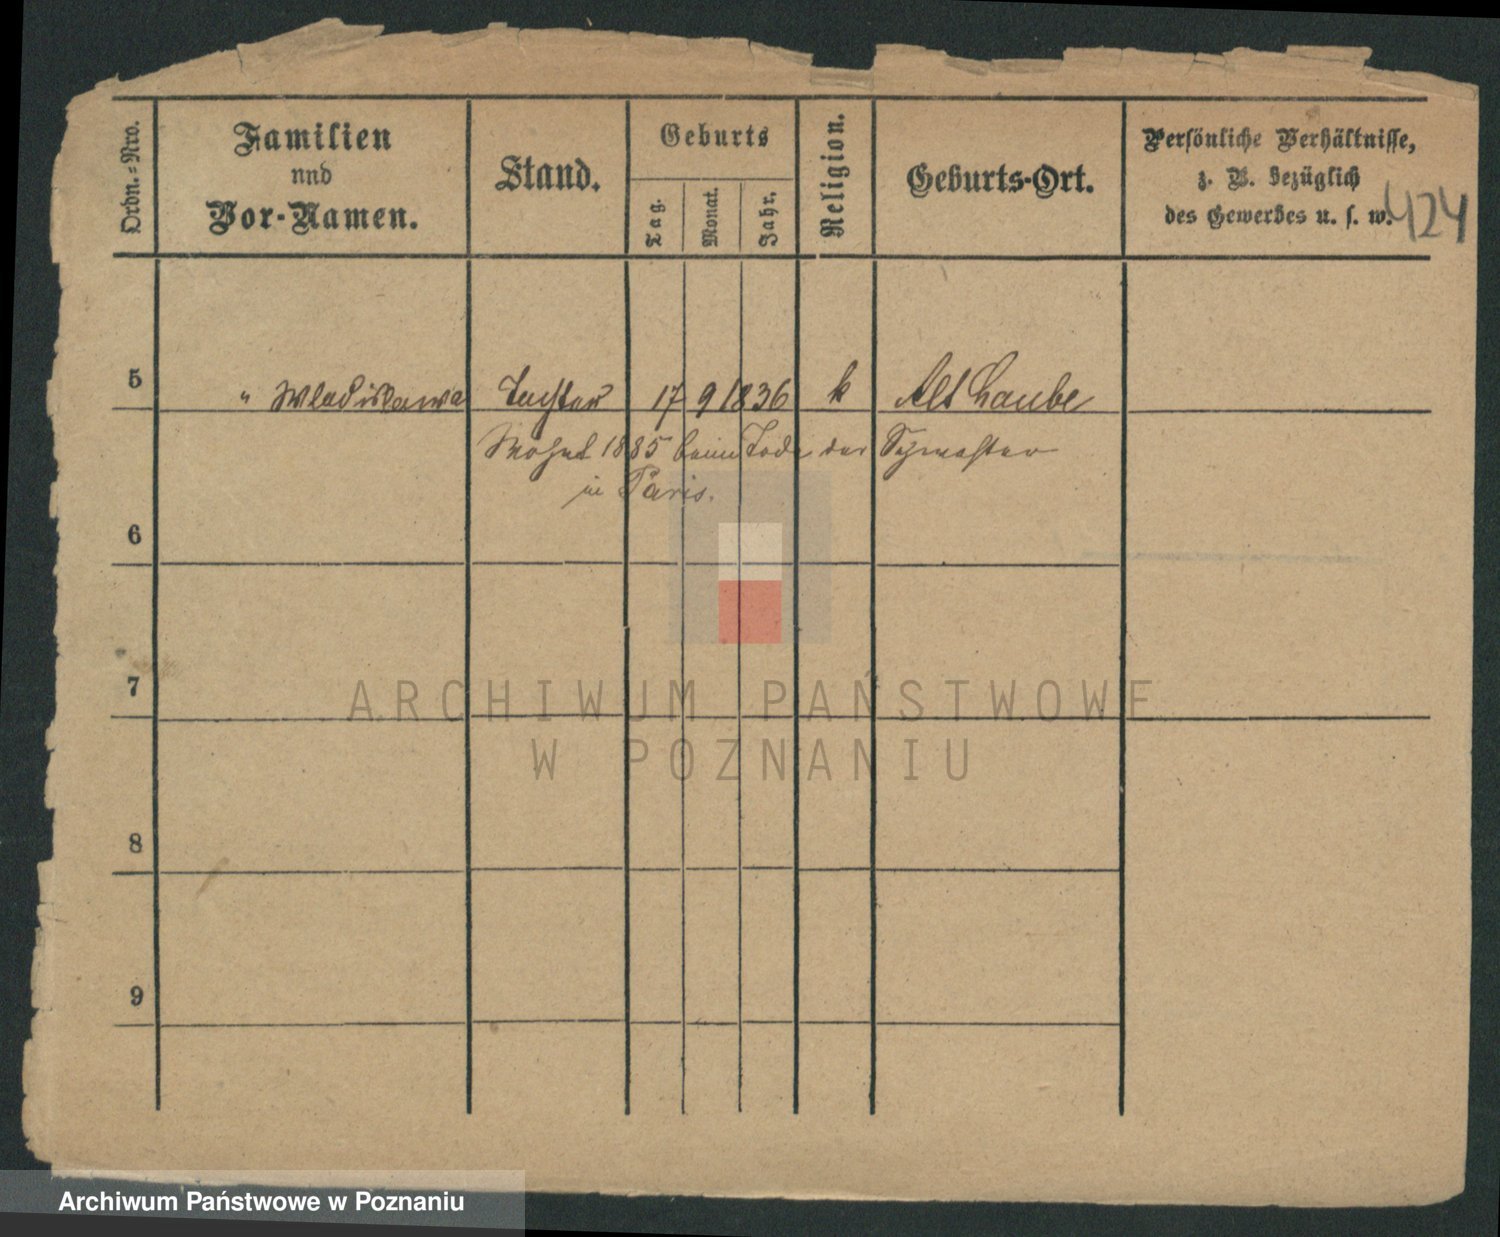 Ordn.-Nro.
Familien
und
Vor-Namen.
Stand.
Geburts
Tag.
Monat.
Jahr.
Religion.
Geburts-Ort.
Persönliche Verhältnisse,
z. B. bezüglich
des Gewerbes u. s. w.
424
5 " Wladislawa Tochter 17 9 1836 k Alt Laube
Wohnt 1885 beim Tode der Schwester
in Paris.
6
7
8
9
ARCHIWUM PAŃSTWOWE
W POZNANIU
Archiwum Państwowe w Poznaniu